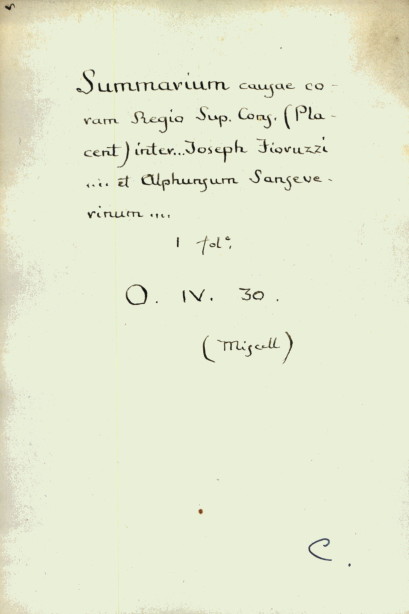 Summarium causae co-
ram Regio Sup. Cons. (Pla-
cent) inter... Joseph Fioruzzi
.... et Alphunsum Sanseve-
rinum ....
1 fol°.
O. IV. 30.
(Miscell)
C.